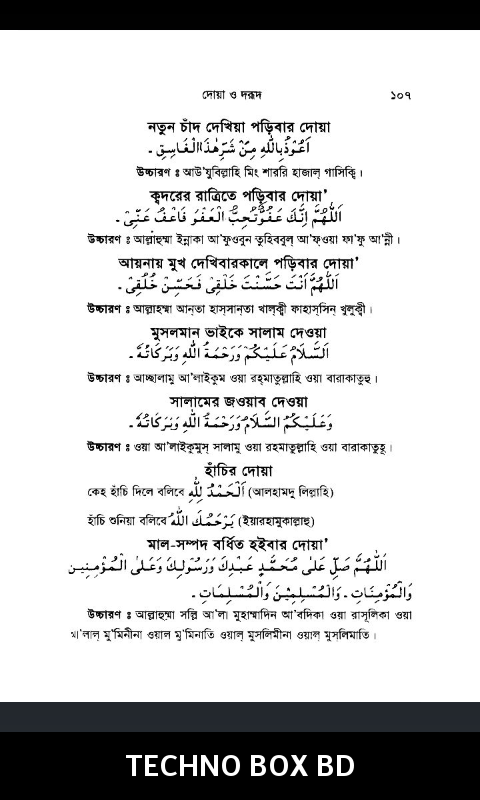 দোয়া ও দরূদ ১০৭
নতুন চাঁদ দেখিয়া পড়িবার দোয়া
اَعُوْذُبِاللّٰهِ مِنْ شَرِّهٰذَاالْغَاسِقِ .
উচ্চারণ ঃ আউ'যুবিল্লাহি মিং শাররি হাজাল্ গাসিক্বি।
ক্বদরের রাত্রিতে পড়িবার দোয়া'
اَللّٰهُمَّ اِنَّكَ عَفُوٌّتُحِبُّ الْعَفْوَ فَاعْفُ عَنِّىْ .
উচ্চারণ ঃ আল্লাহুম্মা ইন্নাকা আ'ফুওবুন তুহিব্বুল্ আ'ফ্ওয়া ফা'ফু আ'ন্নী।
আয়নায় মুখ দেখিবারকালে পড়িবার দোয়া'
اَللّٰهُمَّ اَنْتَ حَسَّنْتَ خَلْقِىْ فَحَسِّنْ خُلُقِىْ .
উচ্চারণ ঃ আল্লাহম্মা আন্তা হাস্সান্তা খাল্ক্বী ফাহাস্সিন্ খুলুক্বী।
মুসলমান ভাইকে সালাম দেওয়া
اَلسَّلَامُ عَلَيْكُمْ وَرَحْمَةُ اللّٰهِ وَبَرَكَاتُهٗ .
উচ্চারণ ঃ আচ্ছালামু আ'লাইকুম ওয়া রহ্মাতুল্লাহি ওয়া বারাকাতুহু।
সালামের জওয়াব দেওয়া
وَعَلَيْكُمُ السَّلَامُ وَرَحْمَةُ اللّٰهِ وَبَرَكَاتُهٗ .
উচ্চারণ ঃ ওয়া আ'লাইকুমুস্ সালামু ওয়া রহমাতুল্লাহি ওয়া বারাকাতুহূ।
হাঁচির দোয়া
কেহ হাঁচি দিলে বলিবে اَلْحَمْدُ لِلّٰهِ (আলহামদু লিল্লাহি)
হাঁচি শুনিয়া বলিবে يَرْحَمُكَ اللّٰهُ (ইয়ারহামুকাল্লাহু)
মাল-সম্পদ বর্ধিত হইবার দোয়া'
اَللّٰهُمَّ صَلِّ عَلٰى مُحَمَّدٍ عَبْدِكَ وَرَسُوْلِكَ وَعَلَى الْمُؤْمِنِيْنَ
وَالْمُؤْمِنَاتِ . وَالْمُسْلِمِيْنَ وَالْمُسْلِمَاتِ .
উচ্চারণ ঃ আল্লাহুম্মা সল্লি আ'লা মুহাম্মাদিন আ'বদিকা ওয়া রাসূলিকা ওয়া
আ'লাল্ মু'মিনীনা ওয়াল মু'মিনাতি ওয়াল্ মুসলিমীনা ওয়াল্ মুসলিমাতি।
TECHNO BOX BD